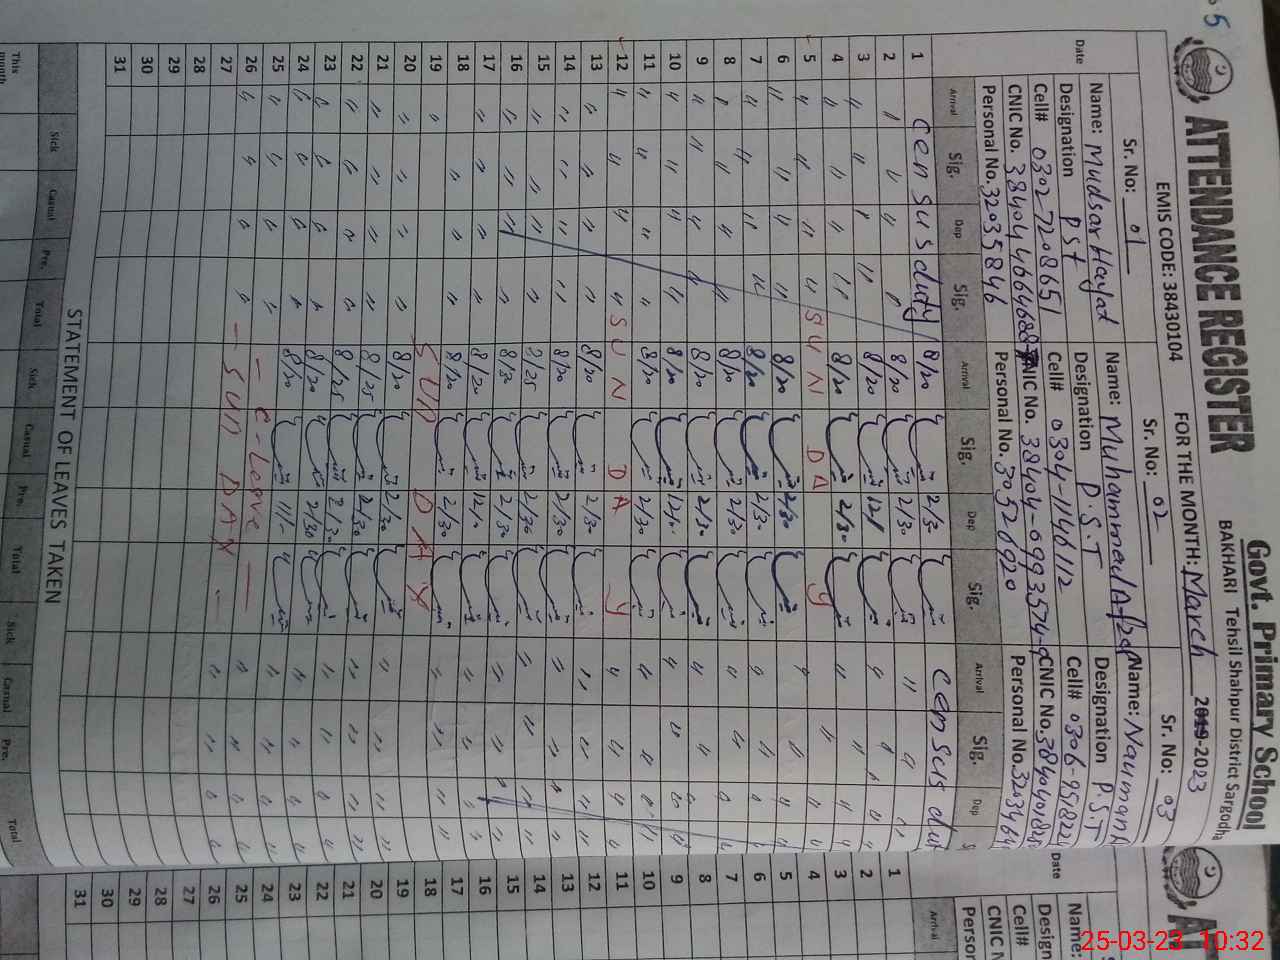 5
Govt. Primary School
BAKHARI Tehsil Shahpur District Sargodha
ATTENDANCE REGISTER
FOR THE MONTH: March 2019-2023
EMIS CODE: 38430104
Sr. No: 01
Sr. No: 02
Sr. No: 03
Name: Mudsar Hayat
Name: Muhammad Afzal
Name: Nauman
Designation PST
Designation P.S.T
Designation P.S.T
Cell# 03027208651
Cell# 0304-1146112
Cell# 0306-951822
CNIC No.
CNIC No. 38404-0993574-9
CNIC No.
Personal No. 32035846
Personal No. 30520920
Personal No. 3203464
Date Arrival Sig. Dep Sig. Arrival Sig. Dep Sig. Arrival Sig. Dep S
1 Census duty 8/20 2/30 Census dut
2 8/20 2/30
3 8/20 12/
4 8/20 2/30
5 SUNDAY
6 8/20 2/30
7 8/20 2/30
8 8/20 2/30
9 8/20 2/30
10 8/20 12/0
11 8/20 2/30
12 SUNDAY
13 8/20 2/30
14 8/20 2/30
15 8/25 2/30
16 8/30 2/30
17 8/20 12/0
18 8/20 2/30
19 SUNDAY
20 8/20 2/30
21 8/25 2/30
22 8/25 2/30
23 8/20 2/30
24 8/20 11/-
25 C-Leave
26 SUNDAY
27
28
29
30
31
STATEMENT OF LEAVES TAKEN
This month Sick Casual Pre. Total Sick Casual Pre. Total Sick Casual Pre. Total
AT
Date
Name:
Design
Cell#
CNIC N
Person
Arrival
1
2
3
4
5
6
7
8
9
10
11
12
13
14
15
16
17
18
19
20
21
22
23
24
25
26
27
28
29
30
31
25-03-23 10:32